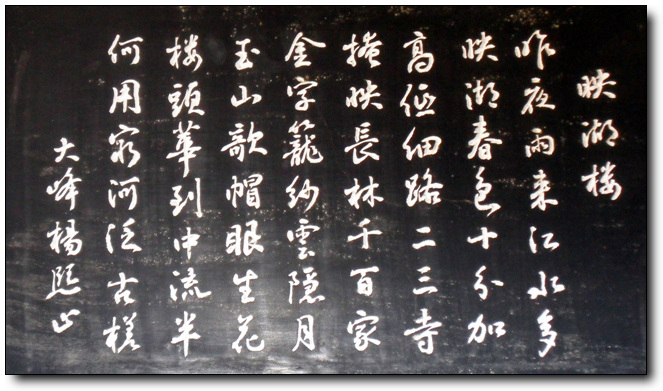 映湖楼
昨夜雨来江水多
映湖春色十分加
高低细路二三寺
掩映長林千百家
金字籠紗雲隱月
玉山歌帽眼生花
楼頭華到中流半
何用窮河泛古槎
大峰楊熙止